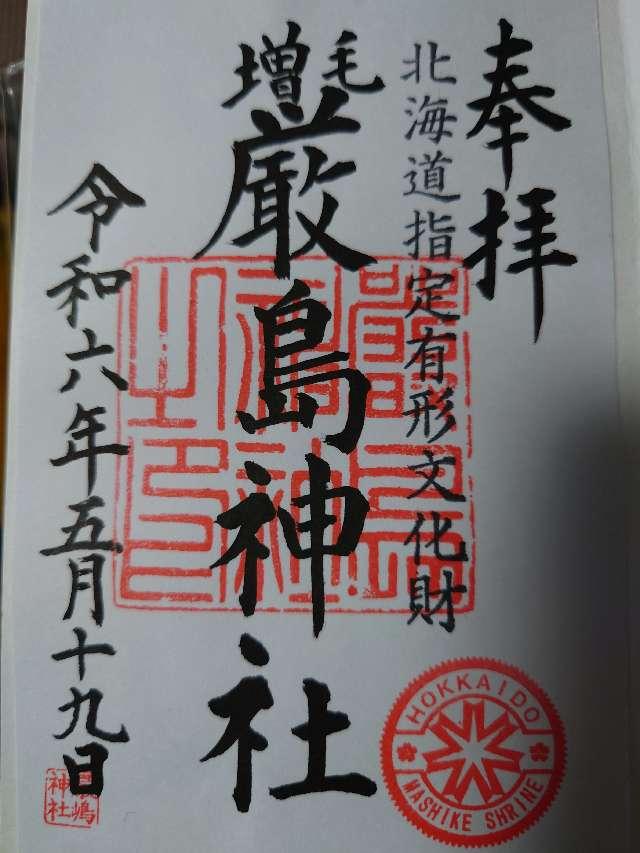 奉拝
北海道指定有形文化財
増毛
厳島神社
令和六年五月十九日
HOKKAIDO
MASHIKE SHRINE
神社